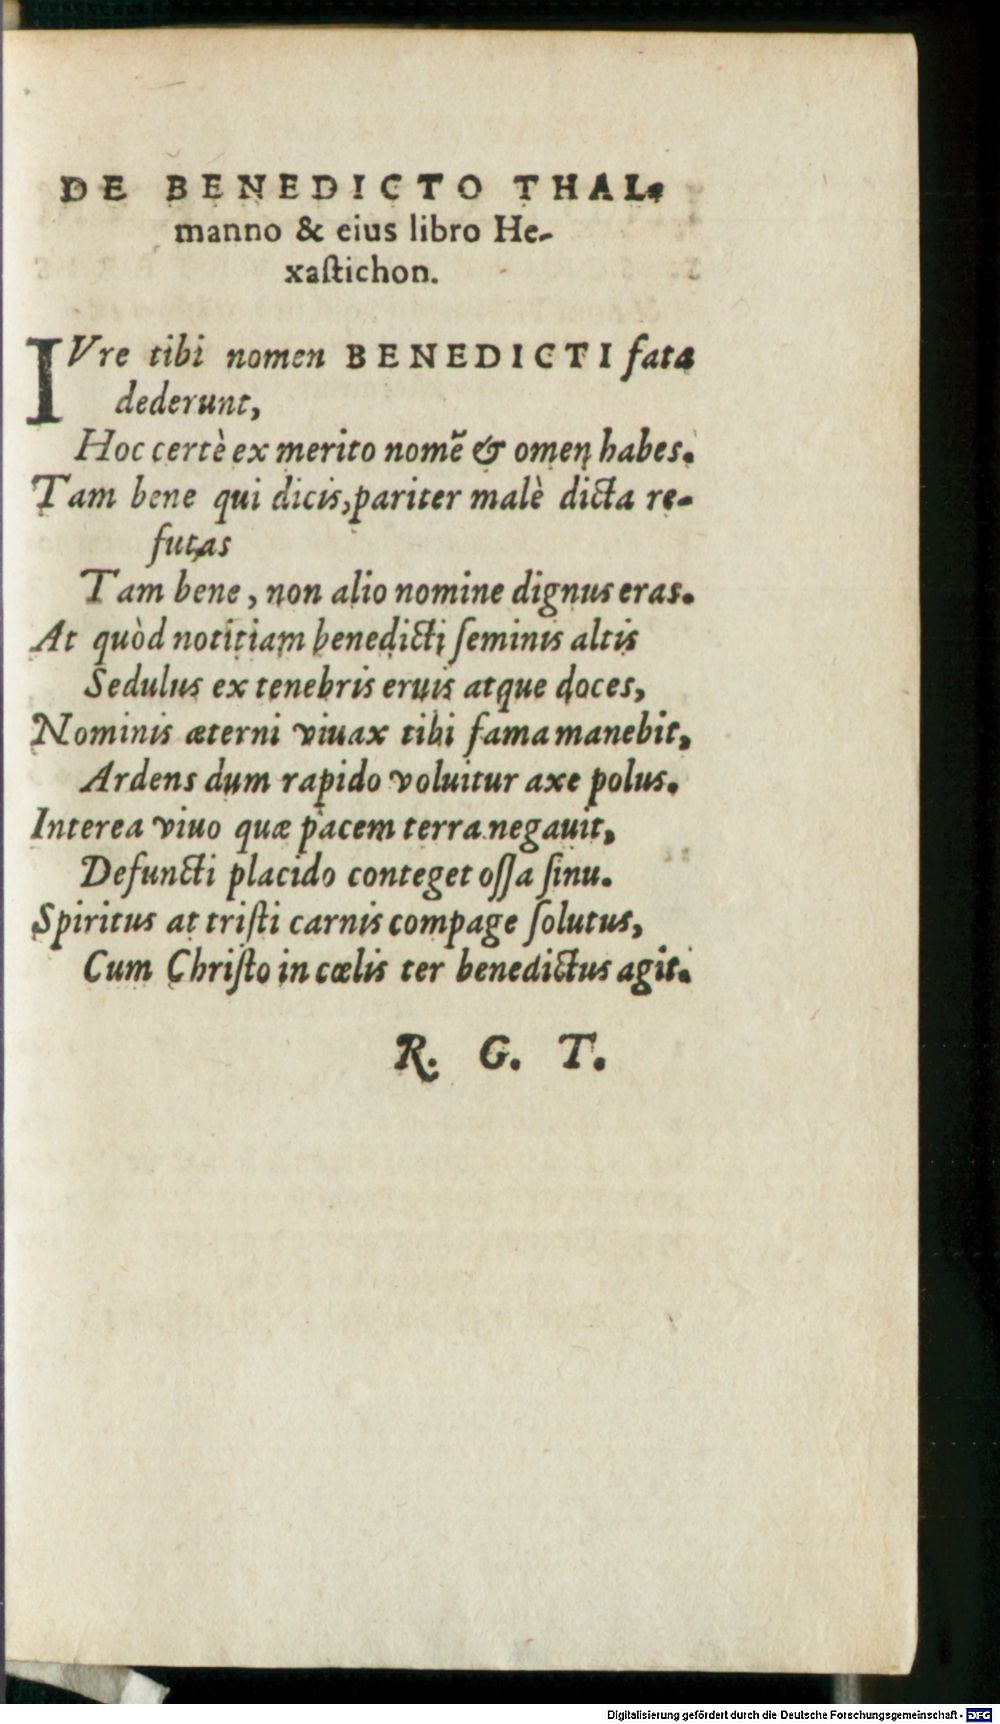 DE BENEDICTO THAL-
manno & eius libro He-
xaſtichon.
IVre tibi nomen BENEDICTI fata
dederunt,
Hoc certè ex merito nomẽ & omen habes.
Tam bene qui dicis, pariter malè dicta re-
futas
Tam bene, non alio nomine dignus eras.
At quòd notitiam benedicti ſeminis altis
Sedulus ex tenebris eruis atque doces,
Nominis æterni viuax tibi fama manebit,
Ardens dum rapido voluitur axe polus.
Interea viuo quæ pacem terra negauit,
Defuncti placido conteget oſſa ſinu.
Spiritus at triſti carnis compage ſolutus,
Cum Chriſto in cœlis ter benedictus agit.
R. G. T.
Digitalisierung gefördert durch die Deutsche Forschungsgemeinschaft - DFG